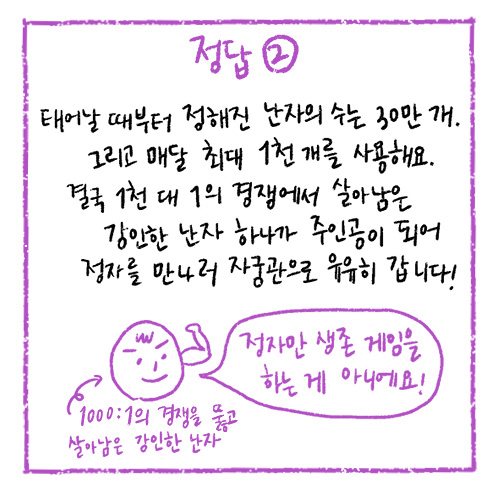 정답 ②
태어날 때부터 정해진 난자의 수는 30만 개.
그리고 매달 최대 1천 개를 사용해요.
결국 1천 대 1의 경쟁에서 살아남은
강인한 난자 하나가 주인공이 되어
정자를 만나러 자궁관으로 유유히 갑니다!
정자만 생존 게임을
하는 게 아니에요!
1000:1의 경쟁을 뚫고
살아남은 강인한 난자